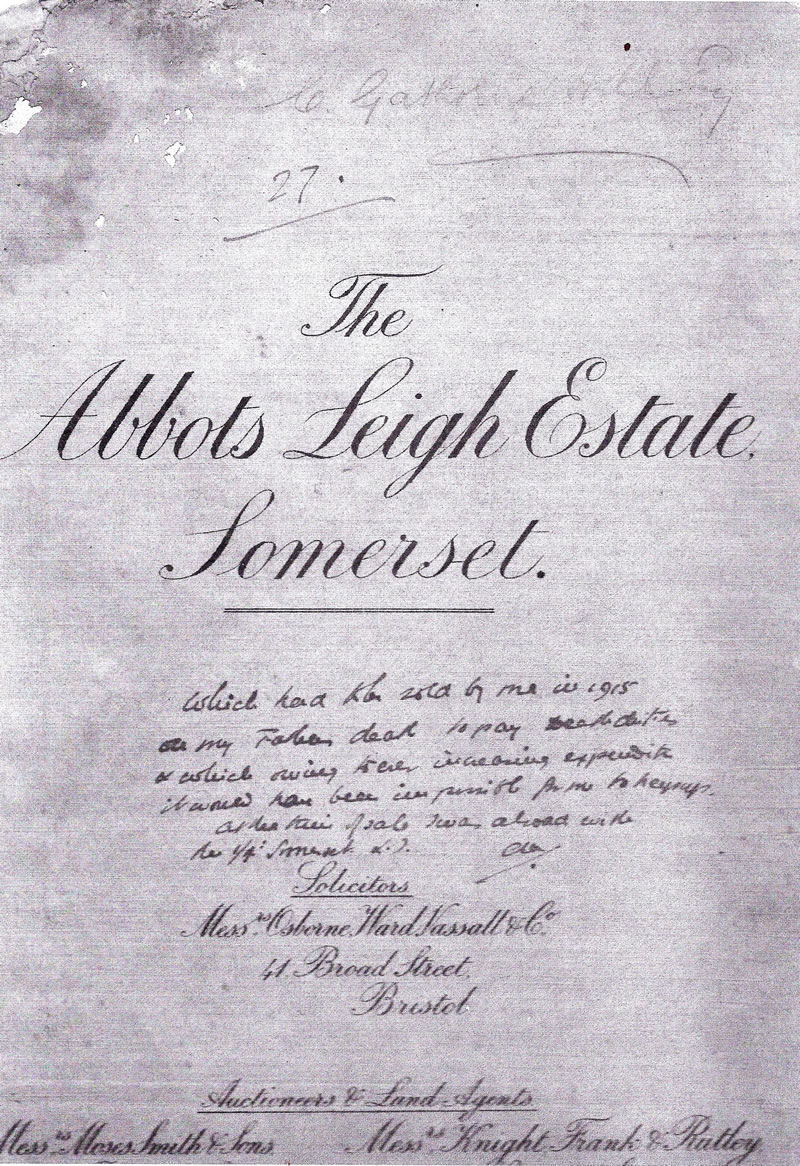 27.
The
Abbots Leigh Estate,
Somerset.
Which had to be sold by me in 1915
on my Fathers death to pay death duties
& which owing to ever increasing expenditure
it would have been impossible for me to keep up.
At the time of sale I was abroad with
the 1/4th Somerset L.I.
Solicitors
Messrs. Osborne, Ward, Vassall & Co.
41 Broad Street,
Bristol
Auctioneers & Land Agents
Messrs Moses Smith & Sons Messrs Knight Frank & Rutley